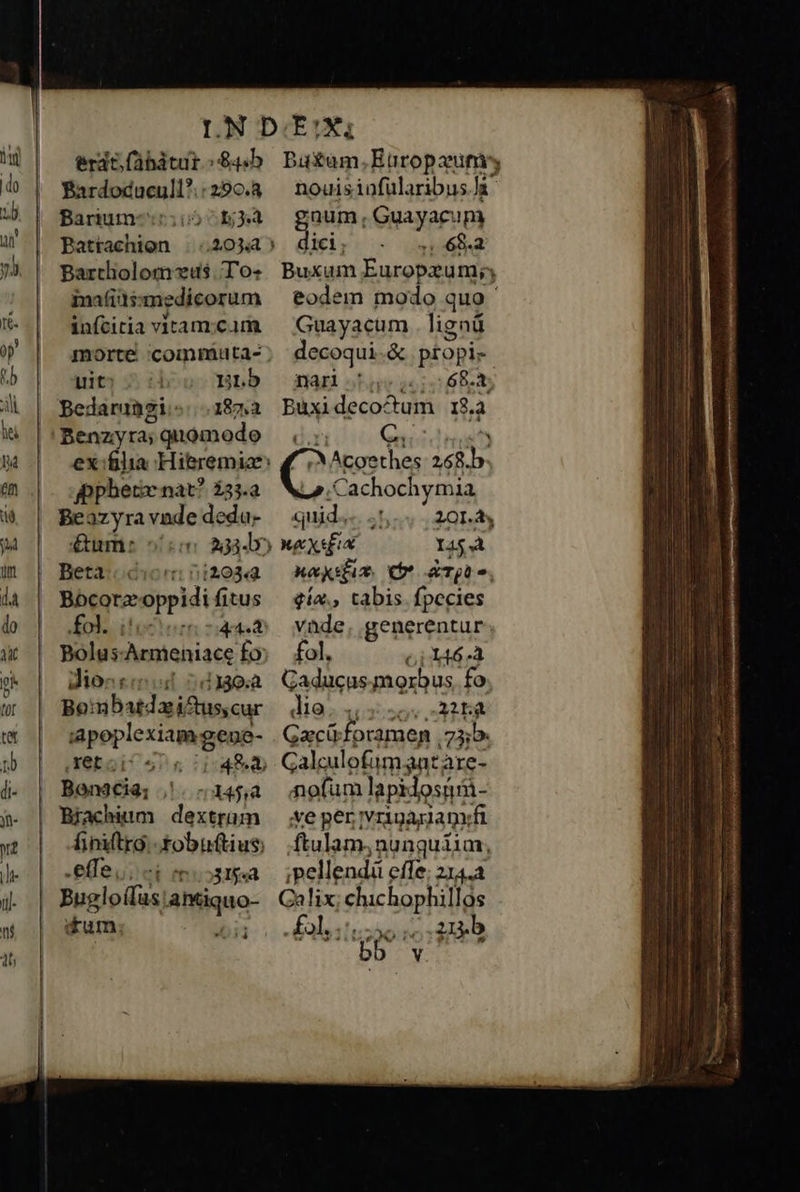 INDEX.
erāt, sāhātur. 84.b
Barduducull⁹. 290.a
Barium 13.a
Battachion 203.a
Bartholomæus To-
masius medicorum
inscitia vitam cum
morte commuta-
uit 131.b
Bedarungi 187.a
Benzyra, quomodo
ex filia Hieremiæ
pphetæ nat⁹ 233.a
Beazyra vnde dedu-
ctum 233.b
Beta 203.a
Bocoræ oppidi situs
fol. 44.a
Bolus Armeniace fo
dio 130.a
Bombardæ ictus, cur
apoplexiam gene-
ret 48.a
Bonacia, 145.a
Brachium dextrum
sinistro robustius
esse 315.a
Buglossus antiquo-
rum
Buxum Europæum,
nouis insularibus li
gnum, Guayacum
dici, 68.a
Buxum Europæum,
eodem modo quo
Guayacum lignū
decoqui & propi-
nari 68.a
Buxi decoctum 18.a
C
CAcoethes 268.b
Cachochymia
quid. 201.a
καχεξία 145.a
καχεξία &
tabis species
vnde generentur
fol. 146.a
Caducus morbus fo
lio 221.a
Cæcū foramen 73.b
Calculosum ant are-
nosum lapidosúm-
ve per vrinariam fi
stulam, nunquam,
pellendū esse. 214.a
Calix chichophillos
fol. 213.b
bb v